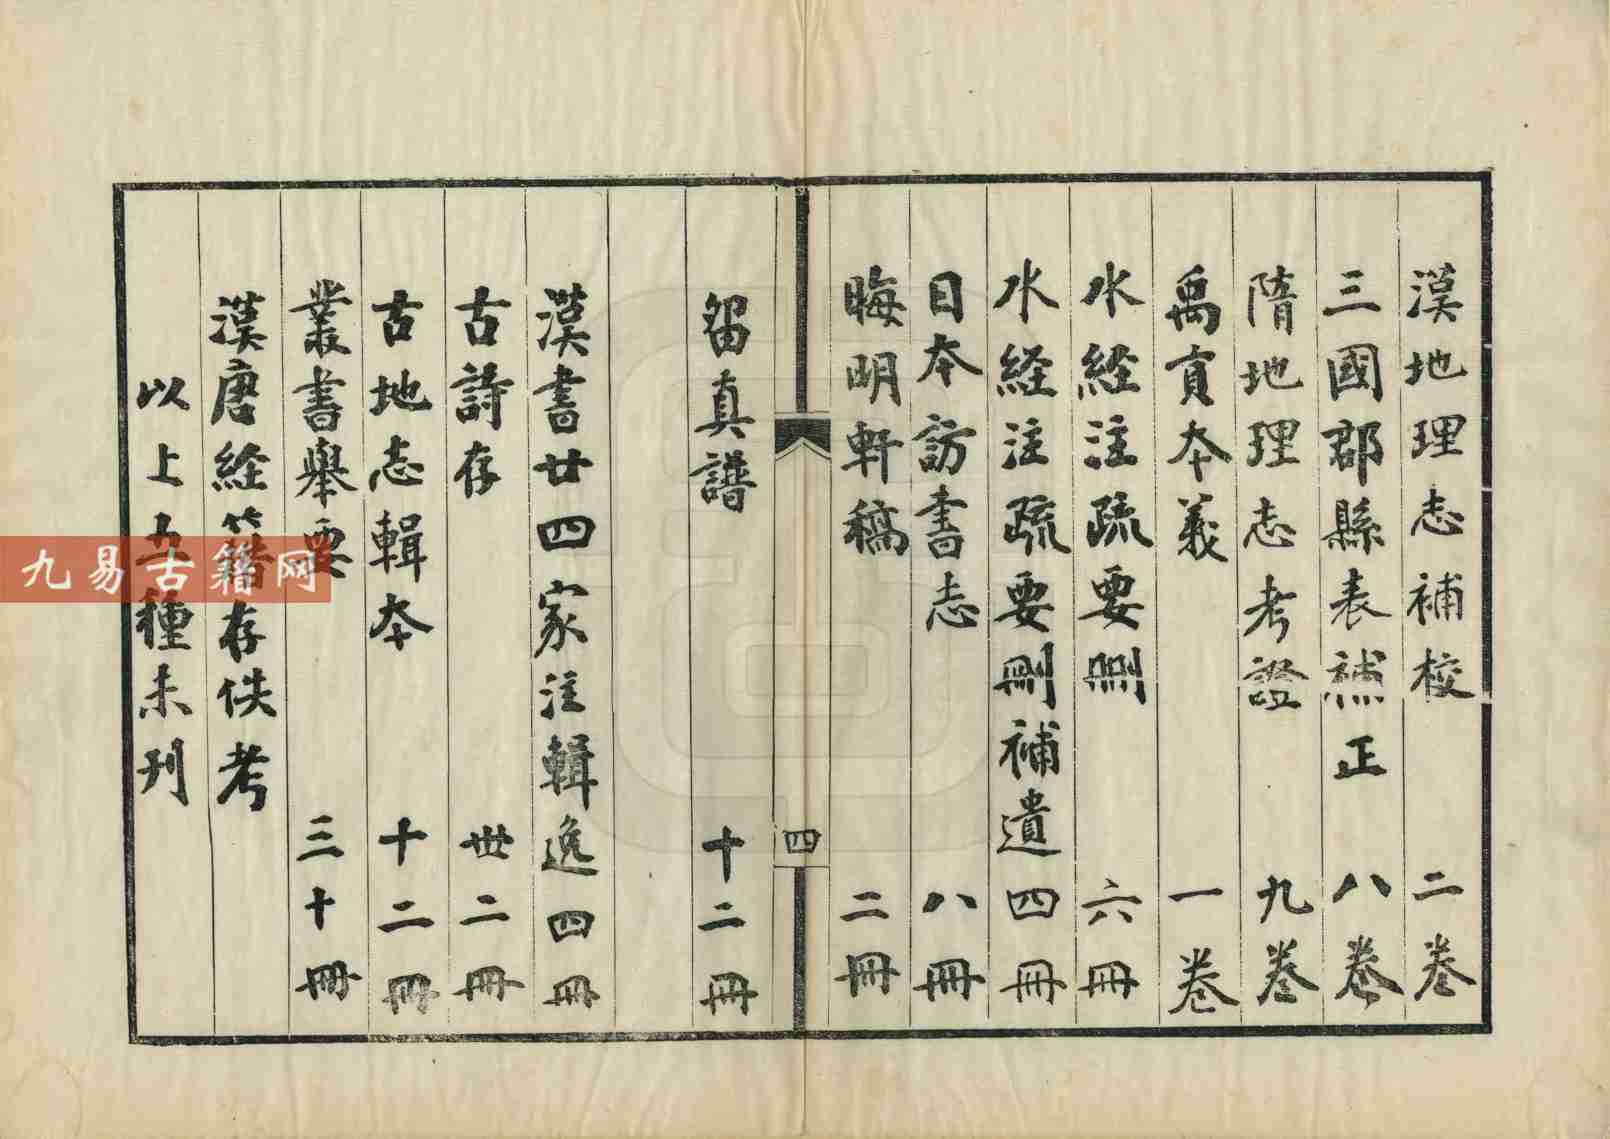 漢地理志補校 二卷
三國郡縣表補正 八卷
隋地理志考證 九卷
禹貢本義 一卷
水経注疏要刪 六冊
水経注疏要刪補遺 四冊
日本訪書志 八冊
晦明軒稿 二冊
四
留真譜 十二冊
漢書廿四家注輯逸 四冊
古詩存 丗二冊
古地志輯本 十二冊
叢書舉要 三十冊
漢唐経籍存佚考
以上五種未刊
九易古籍网